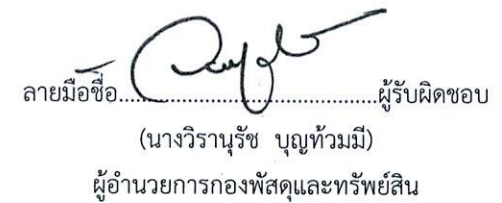 ลายมือชื่อ......................................ผู้รับผิดชอบ
(นางวิรานุรัช บุญท้วมมี)
ผู้อำนวยการกองพัสดุและทรัพย์สิน